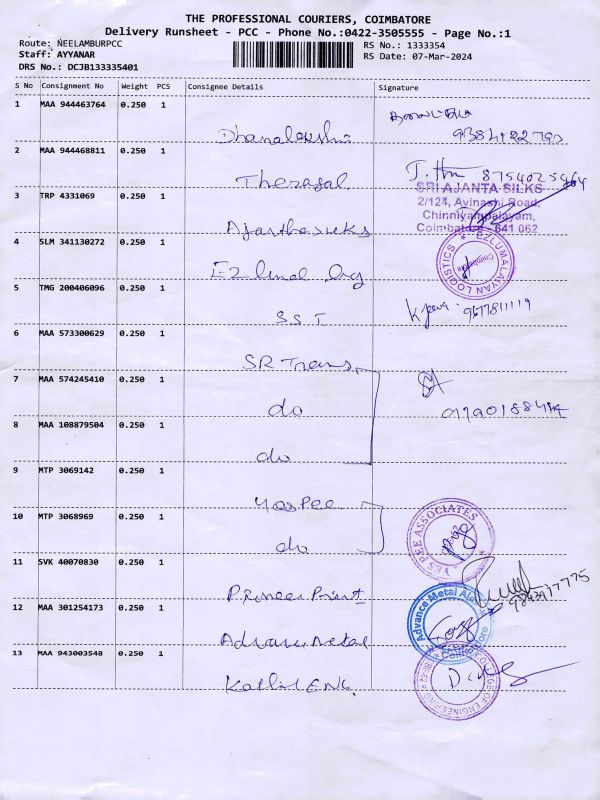 THE PROFESSIONAL COURIERS, COIMBATORE
Delivery Runsheet - PCC - Phone No.:0422-3505555 - Page No.:1
Route: NEELAMBURPCC
Staff: AYYANAR
DRS No.: DCJB133335401
RS No.: 1333354
RS Date: 07-Mar-2024
S No Consignment No Weight PCS Consignee Details Signature
1 MAA 944463764 0.250 1
Dhanalakshmi
2 MAA 944468811 0.250 1
8754025464
SRI AJANTA SILKS
2/124, Avinashi Road,
Chinniyampalayam,
Coimbatore - 641 062
3 TRP 4331069 0.250 1
4 SLM 341130272 0.250 1
EZLUMALAYAN LOGISTICS
Coimbatore
5 TMG 200406096 0.250 1
SST
9677811119
6 MAA 573300629 0.250 1
SR Trans
7 MAA 574245410 0.250 1
do
8 MAA 108879504 0.250 1
do
9 MTP 3069142 0.250 1
YES PEE ASSOCIATES
10 MTP 3068969 0.250 1
do
11 SVK 40070830 0.250 1
Pioneer Print
12 MAA 301254173 0.250 1
Advance Metal
Advance Metal
Coimbatore
13 MAA 943003548 0.250 1
OF ENGINEERING